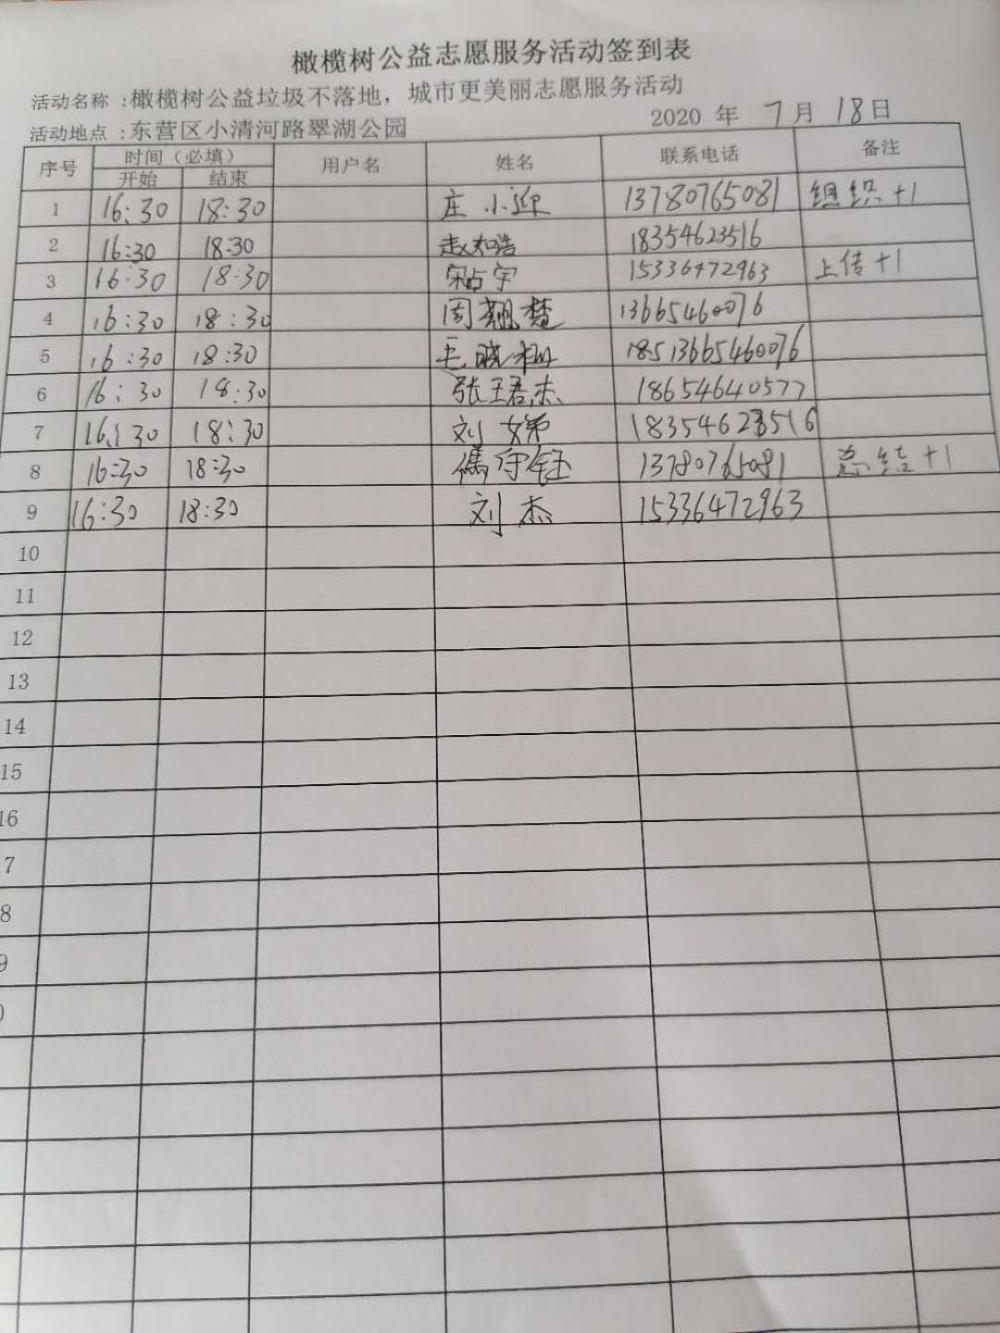 橄榄树公益志愿服务活动签到表
活动名称：橄榄树公益垃圾不落地，城市更美丽志愿服务活动
活动地点：东营区小清河路翠湖公园 2020 年 7月 18日
序号 时间（必填） 用户名 姓名 联系电话 备注
开始 结束
1 16:30 18:30 庄小迎 13780765081 组织+1
2 16:30 18:30 赵和浩 18354623516
3 16:30 18:30 宋占宇 15336472963 上传+1
4 16:30 18:30 周翘楚 13665460076
5 16:30 18:30 毛晓 13665460076
6 16:30 18:30 张王君杰 18654640577
7 16:30 18:30 刘娣 18354623516
8 16:30 18:30 守钰 13780765081 总结+1
9 16:30 18:30 刘杰 15336472963
10
11
12
13
14
15
16
7
8
9